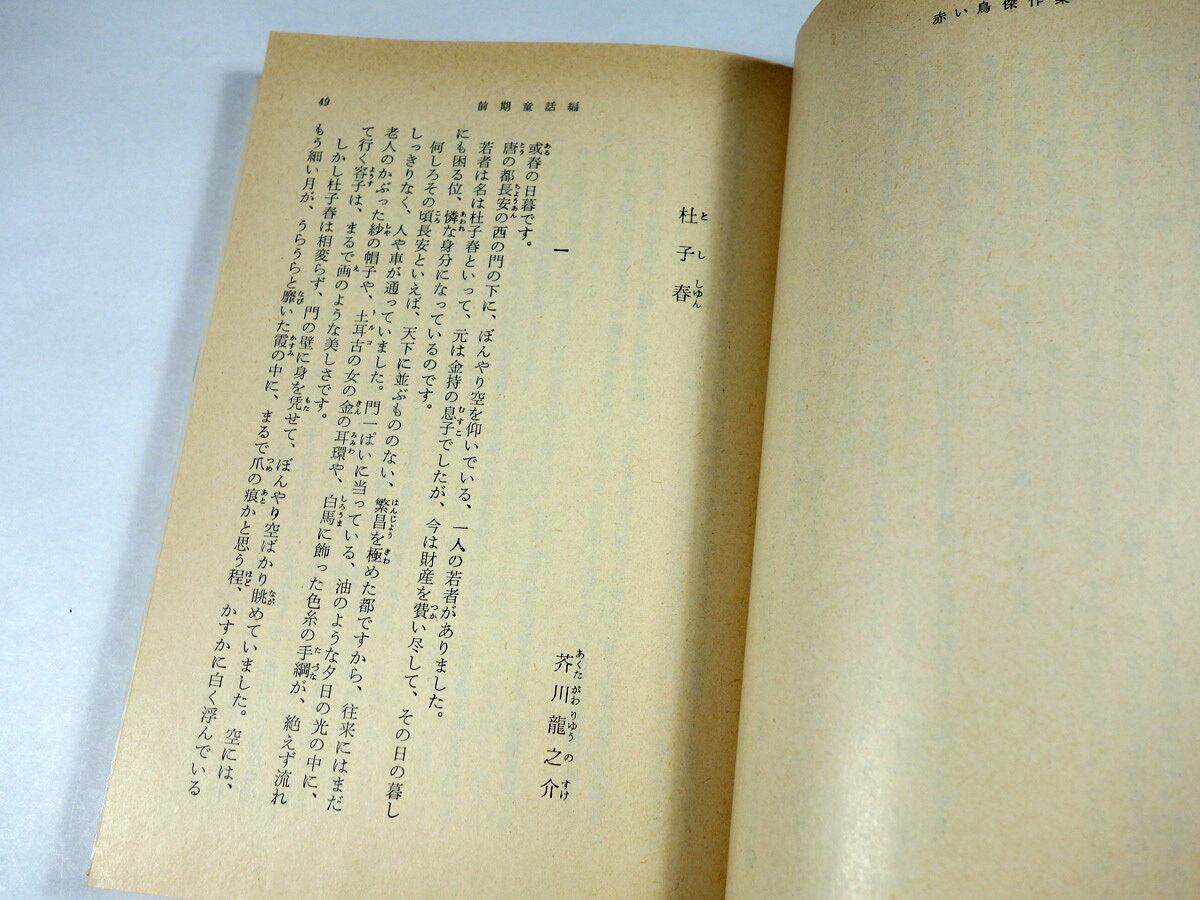 赤い鳥傑作集
前期童話編
49
杜子春
とししゆん
芥川龍之介
あくたがわりゆうのすけ
一
或春の日暮です。
唐の都長安の西の門の下に、ぼんやり空を仰いでいる、一人の若者がありました。
若者は名は杜子春といって、元は金持の息子でしたが、今は財産を費い尽して、その日の暮し
にも困る位、憐な身分になっているのです。
何しろその頃長安といえば、天下に並ぶもののない、繁昌を極めた都ですから、往来にはまだ
しっきりなく、人や車が通っていました。門一ぱいに当っている、油のような夕日の光の中に、
老人のかぶった紗の帽子や、土耳古の女の金の耳環や、白馬に飾った色糸の手綱が、絶えず流れ
て行く容子は、まるで画のような美しさです。
しかし杜子春は相変らず、門の壁に身を凭せて、ぼんやり空ばかり眺めていました。空には、
もう細い月が、うらうらと靡いた霞の中に、まるで爪の痕かと思う程、かすかに白く浮んでいる